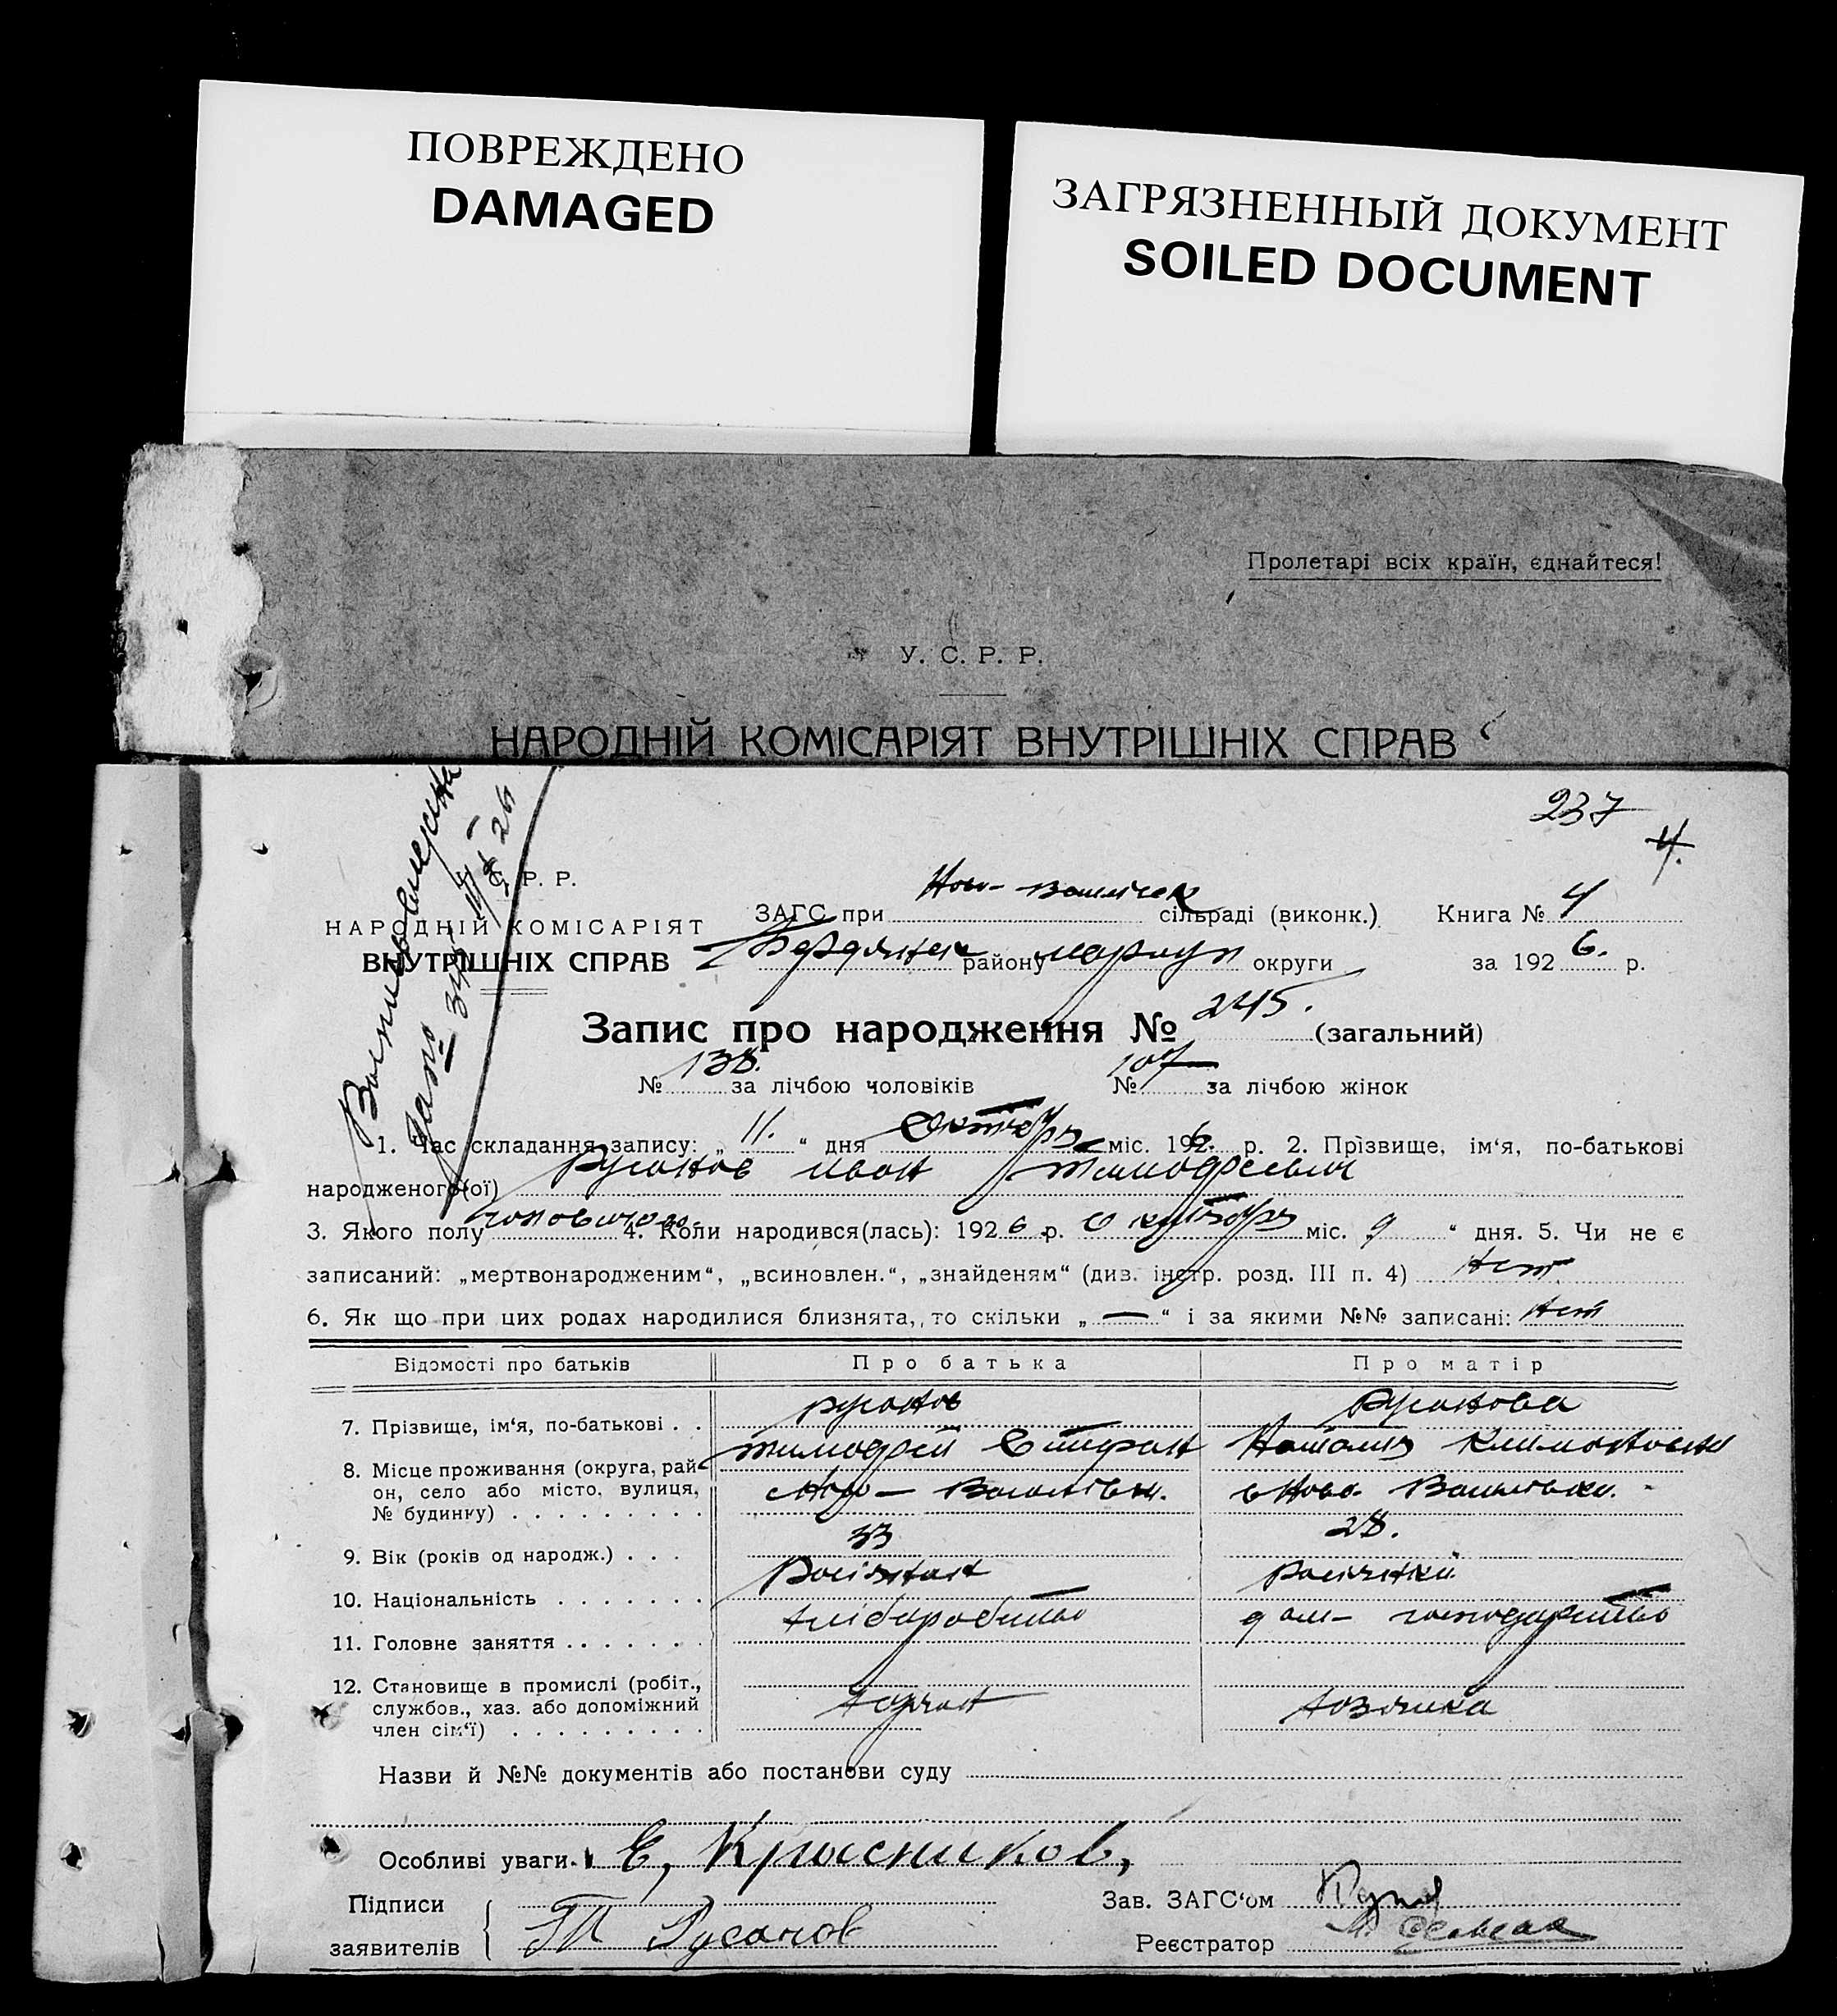 ПОВРЕЖДЕНО
DAMAGED
ЗАГРЯЗНЕННЫЙ ДОКУМЕНТ
SOILED DOCUMENT
Пролетарі всіх країн, єднайтеся!
У. С. Р. Р.
НАРОДНІЙ КОМІСАРІЯТ ВНУТРІШНІХ СПРАВ
237
4.
Р. Р.
НАРОДНІЙ КОМІСАРІЯТ
ВНУТРІШНІХ СПРАВ
ЗАГС при Ново- сільраді (виконк.) Книга № 4
Бердянск району мариуп округи за 1926. р.
Запис про народження № 245. (загальний)
№ 138. за лічбою чоловіків № 107 за лічбою жінок
1. Час складання запису: „ 11. “ дня Октобря міс. 1926. р. 2. Прізвище, ім‘я, по-батькові
народженого(ої) Русанов иван Тимофеевич
3. Якого полу 4. Коли народився(лась): 1926 р. Октобря міс. 9 “ дня. 5. Чи не є
записаний: „мертвонародженим“, „всиновлен.“, „знайденям“ (див. інстр. розд. III п. 4) нет
6. Як що при цих родах народилися близнята, то скільки „ — “ і за якими №№ записані: нет
Відомості про батьків Про батька Про матір
7. Прізвище, ім‘я, по-батькові . . Русанов Русанова
Тимофей Стифан Наталия Климоновна
8. Місце проживання (округа, район, село або місто, вулиця, № будинку) Ново- Василівк. Ново Васильвки.
9. Вік (років од народж.) . . . 33 28.
10. Національність Росіянин Росіянка
11. Головне заняття хліборобство дом- господарство
12. Становище в промислі (робіт., службов., хаз. або допоміжний член сім‘ї) хозяика
Назви й №№ документів або постанови суду
Особливі уваги. Е, Крысников,
Підписи заявителів Т Русанов
Зав. ЗАГС‘ом
Реєстратор